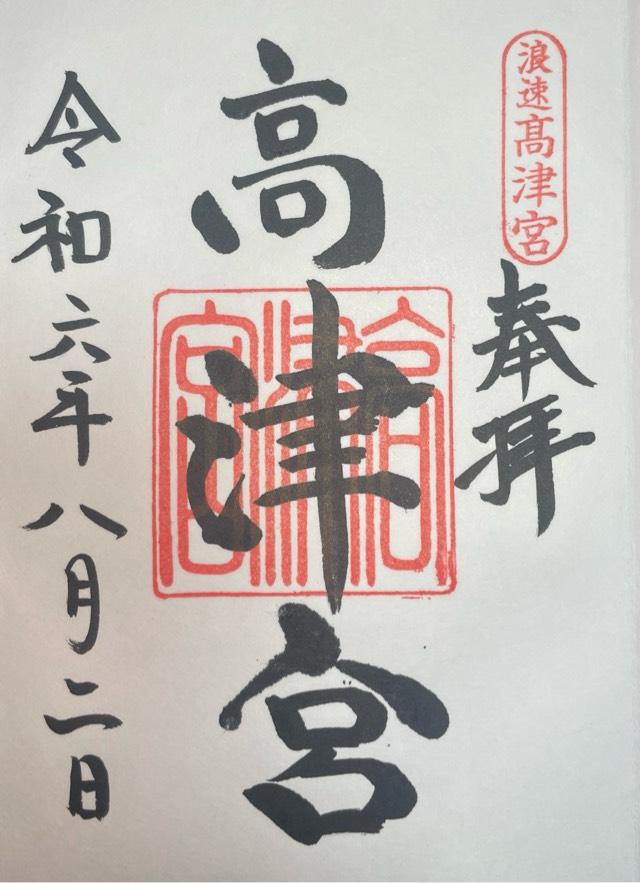 浪速高津宮
奉拝
高津宮
高津宮
令和六年八月二日